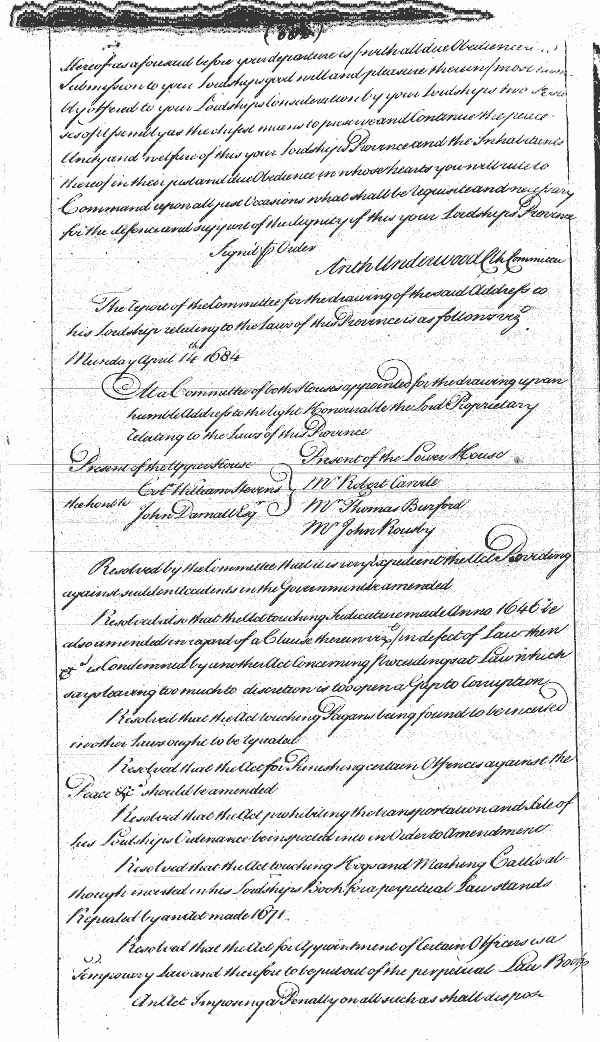 thereof as aforesaid before your departure is (with all due Obedience
Submission to your Lordships good will and pleasure therein) most
offered to your Lordships Consideration by your Lordships two
of Assembly as the chiefest means to preserve and Continue the peace
Unity and welfare of this your Lordships Province and the Inhabitants
thereof in their just and due Obedience in whose hearts you will rule to
Command upon all just Occasions what shall be requisite and necessary
for the defence and support of the dignity of this your Lordships Province
Signd Order
Anth Underwood Clk Committee
The report of the Committee for the drawing of the said Address to
his Lordship relating to the Laws of this Province is as follows vizt
Munday April 14th 1684
At a Committee of both Houses appointed for the drawing up an
humble Address to the right Honourable the Lord Proprietary
relating to the Laws of this Province
Present of the Upper House Present of the Lower House
the honble Colt William Stevens Mr Robert Carvile
John Darnall Esqr Mr Thomas Burford
Mr John Rousby
Resolved by the Committee that it is very Expedient the Act Providing
against sudden Accidents in the Government be amended
Resolved also that the Act touching Judicature made Anno 1646 be
also amended in regard of a Clause therein vizt (in defect of Law then
&ca) is Condemned by another Act Concerning Proceedings at Law which
says leaving too much to discretion is to open a Gap to Corruption
Resolved that the Act touching Pagans being found to be incerted
in other Laws ought to be repealed
Resolved that the Act for Punishing certain Offences against the
Peace &ca should be amended
Resolved that the Act prohibiting the transportation and Sale of
his Lordships Ordenance be inspected into in Order to Amendment
Resolved that the Act touching Hogs and Marking Cattle al
though incerted in his Lordships Book for a perpetual Law stands
Repealed by an Act made 1671.
Resolved that the Act for Appointment of Certain Officers is a
Temporary Law and therefore to be put out of the perpetual Law Book
An Act Imposing a Penalty on all such as shall dispose